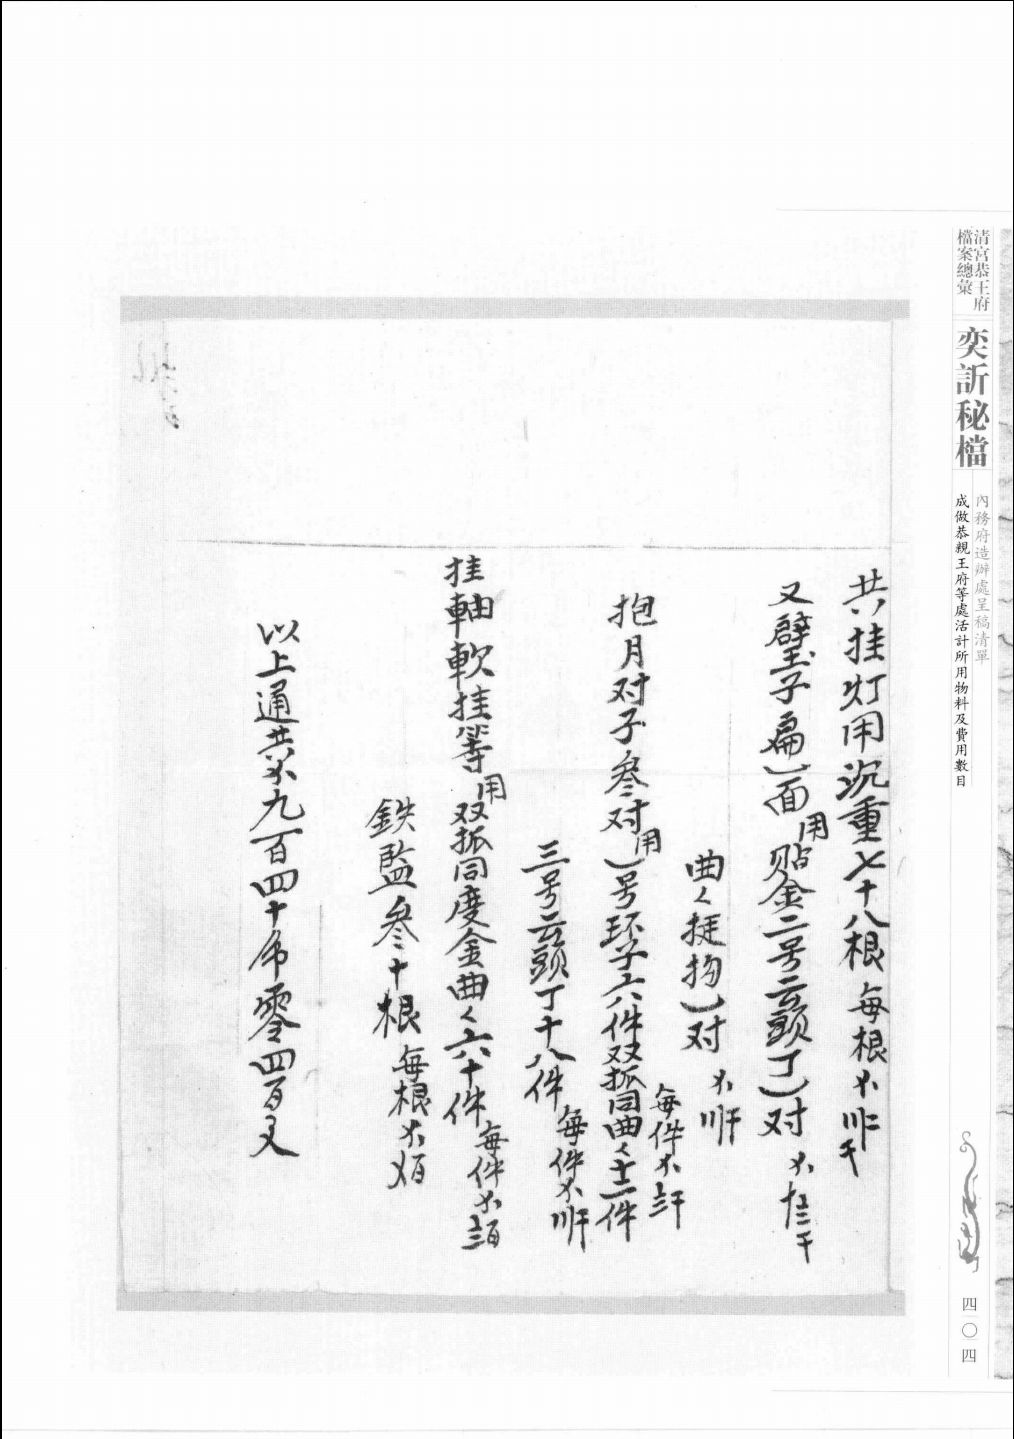 清宮恭王府
檔案總彙
奕訢秘檔
內務府造辦處呈稿清單
成做恭親王府等處活計所用物料及費用數目
共挂灯用沉重七十八根 每根
又壁子扁一面用貼金二号云頭丁一对
曲〻挺鈎一对
抱月对子叁对用一号环子六件双抓同曲〻十二件 每件
三号云頭丁十八件 每件
挂軸軟挂等用双抓同度金曲〻六十件 每件
鉄監叁十根 每根
以上通共 九百四十吊零四百文
四〇四